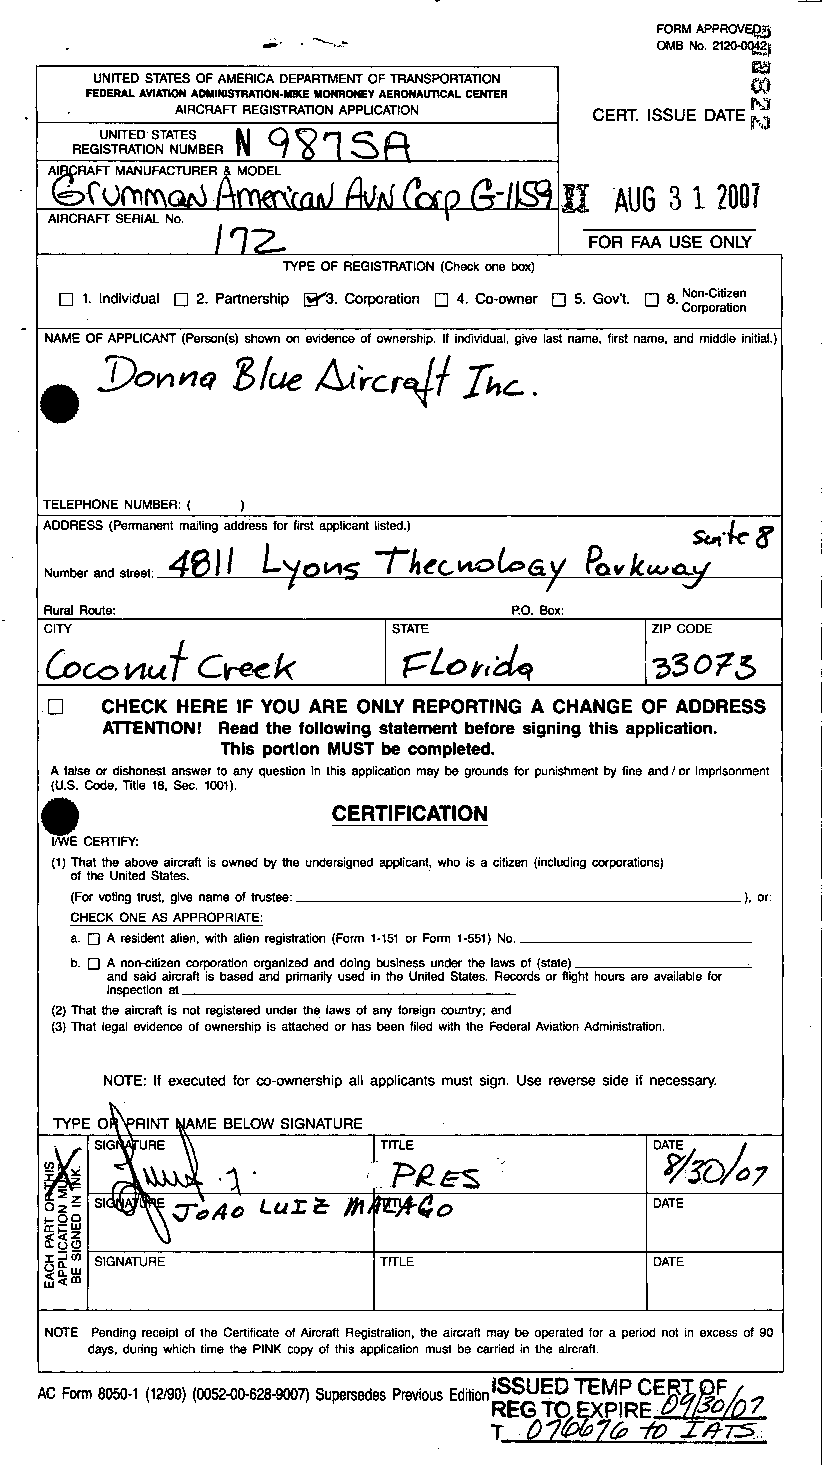 FORM APPROVED
OMB No. 2120-0042
UNITED STATES OF AMERICA DEPARTMENT OF TRANSPORTATION
FEDERAL AVIATION ADMINISTRATION-MIKE MONRONEY AERONAUTICAL CENTER
AIRCRAFT REGISTRATION APPLICATION
CERT. ISSUE DATE
UNITED STATES
REGISTRATION NUMBER N 987SA
AIRCRAFT MANUFACTURER & MODEL
Grumman American AVN Corp G-1159
II AUG 31 2007
AIRCRAFT SERIAL No.
172
FOR FAA USE ONLY
TYPE OF REGISTRATION (Check one box)
1. Individual 2. Partnership 3. Corporation 4. Co-owner 5. Gov't. 8. Non-Citizen Corporation
NAME OF APPLICANT (Person(s) shown on evidence of ownership. If individual, give last name, first name, and middle initial.)
Donna Blue Aircraft Inc.
TELEPHONE NUMBER: ( )
ADDRESS (Permanent mailing address for first applicant listed.)
Suite 8
Number and street: 4811 Lyons Thecnology Parkway
Rural Route: P.O. Box:
CITY STATE ZIP CODE
Coconut Creek Florida 33073
CHECK HERE IF YOU ARE ONLY REPORTING A CHANGE OF ADDRESS
ATTENTION! Read the following statement before signing this application.
This portion MUST be completed.
A false or dishonest answer to any question in this application may be grounds for punishment by fine and / or imprisonment
(U.S. Code, Title 18, Sec. 1001).
CERTIFICATION
I/WE CERTIFY:
(1) That the above aircraft is owned by the undersigned applicant, who is a citizen (including corporations)
of the United States.
(For voting trust, give name of trustee: ), or:
CHECK ONE AS APPROPRIATE:
a. A resident alien, with alien registration (Form 1-151 or Form 1-551) No.
b. A non-citizen corporation organized and doing business under the laws of (state)
and said aircraft is based and primarily used in the United States. Records or flight hours are available for
inspection at
(2) That the aircraft is not registered under the laws of any foreign country; and
(3) That legal evidence of ownership is attached or has been filed with the Federal Aviation Administration.
NOTE: If executed for co-ownership all applicants must sign. Use reverse side if necessary.
TYPE OR PRINT NAME BELOW SIGNATURE
EACH PART OF THIS
APPLICATION MUST
BE SIGNED IN INK.
SIGNATURE TITLE DATE
PRES 8/30/07
SIGNATURE TITLE DATE
JOAO LUIZ MALAGO
SIGNATURE TITLE DATE
NOTE Pending receipt of the Certificate of Aircraft Registration, the aircraft may be operated for a period not in excess of 90
days, during which time the PINK copy of this application must be carried in the aircraft.
AC Form 8050-1 (12/90) (0052-00-628-9007) Supersedes Previous Edition
ISSUED TEMP CERT OF
REG TO EXPIRE 09/30/07
T 076676 to IATS